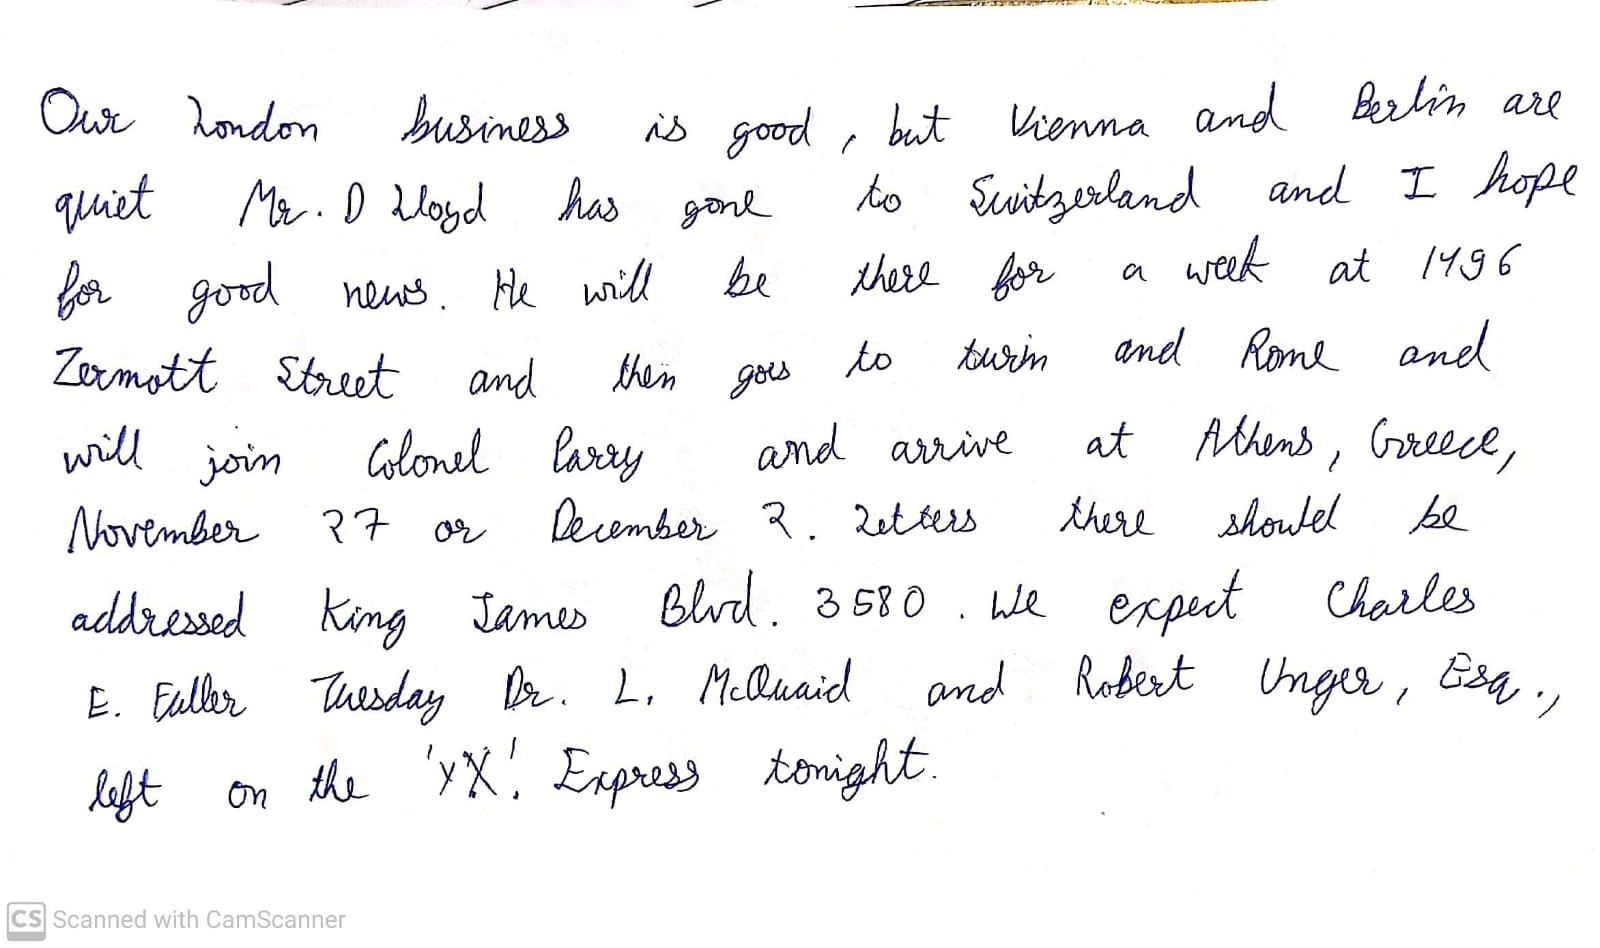 Our London business is good, but Vienna and Berlin are
quiet Mr. D Lloyd has gone to Switzerland and I hope
for good news. He will be there for a week at 1496
Zermott Street and then goes to turin and Rome and
will join Colonel Parry and arrive at Athens, Greece,
November 27 or December 2. Letters there should be
addressed King James Blvd. 3580. We expect Charles
E. Fuller Tuesday Dr. L. McQuaid and Robert Unger, Esq.,
left on the 'YX'. Express tonight.
CS Scanned with CamScanner